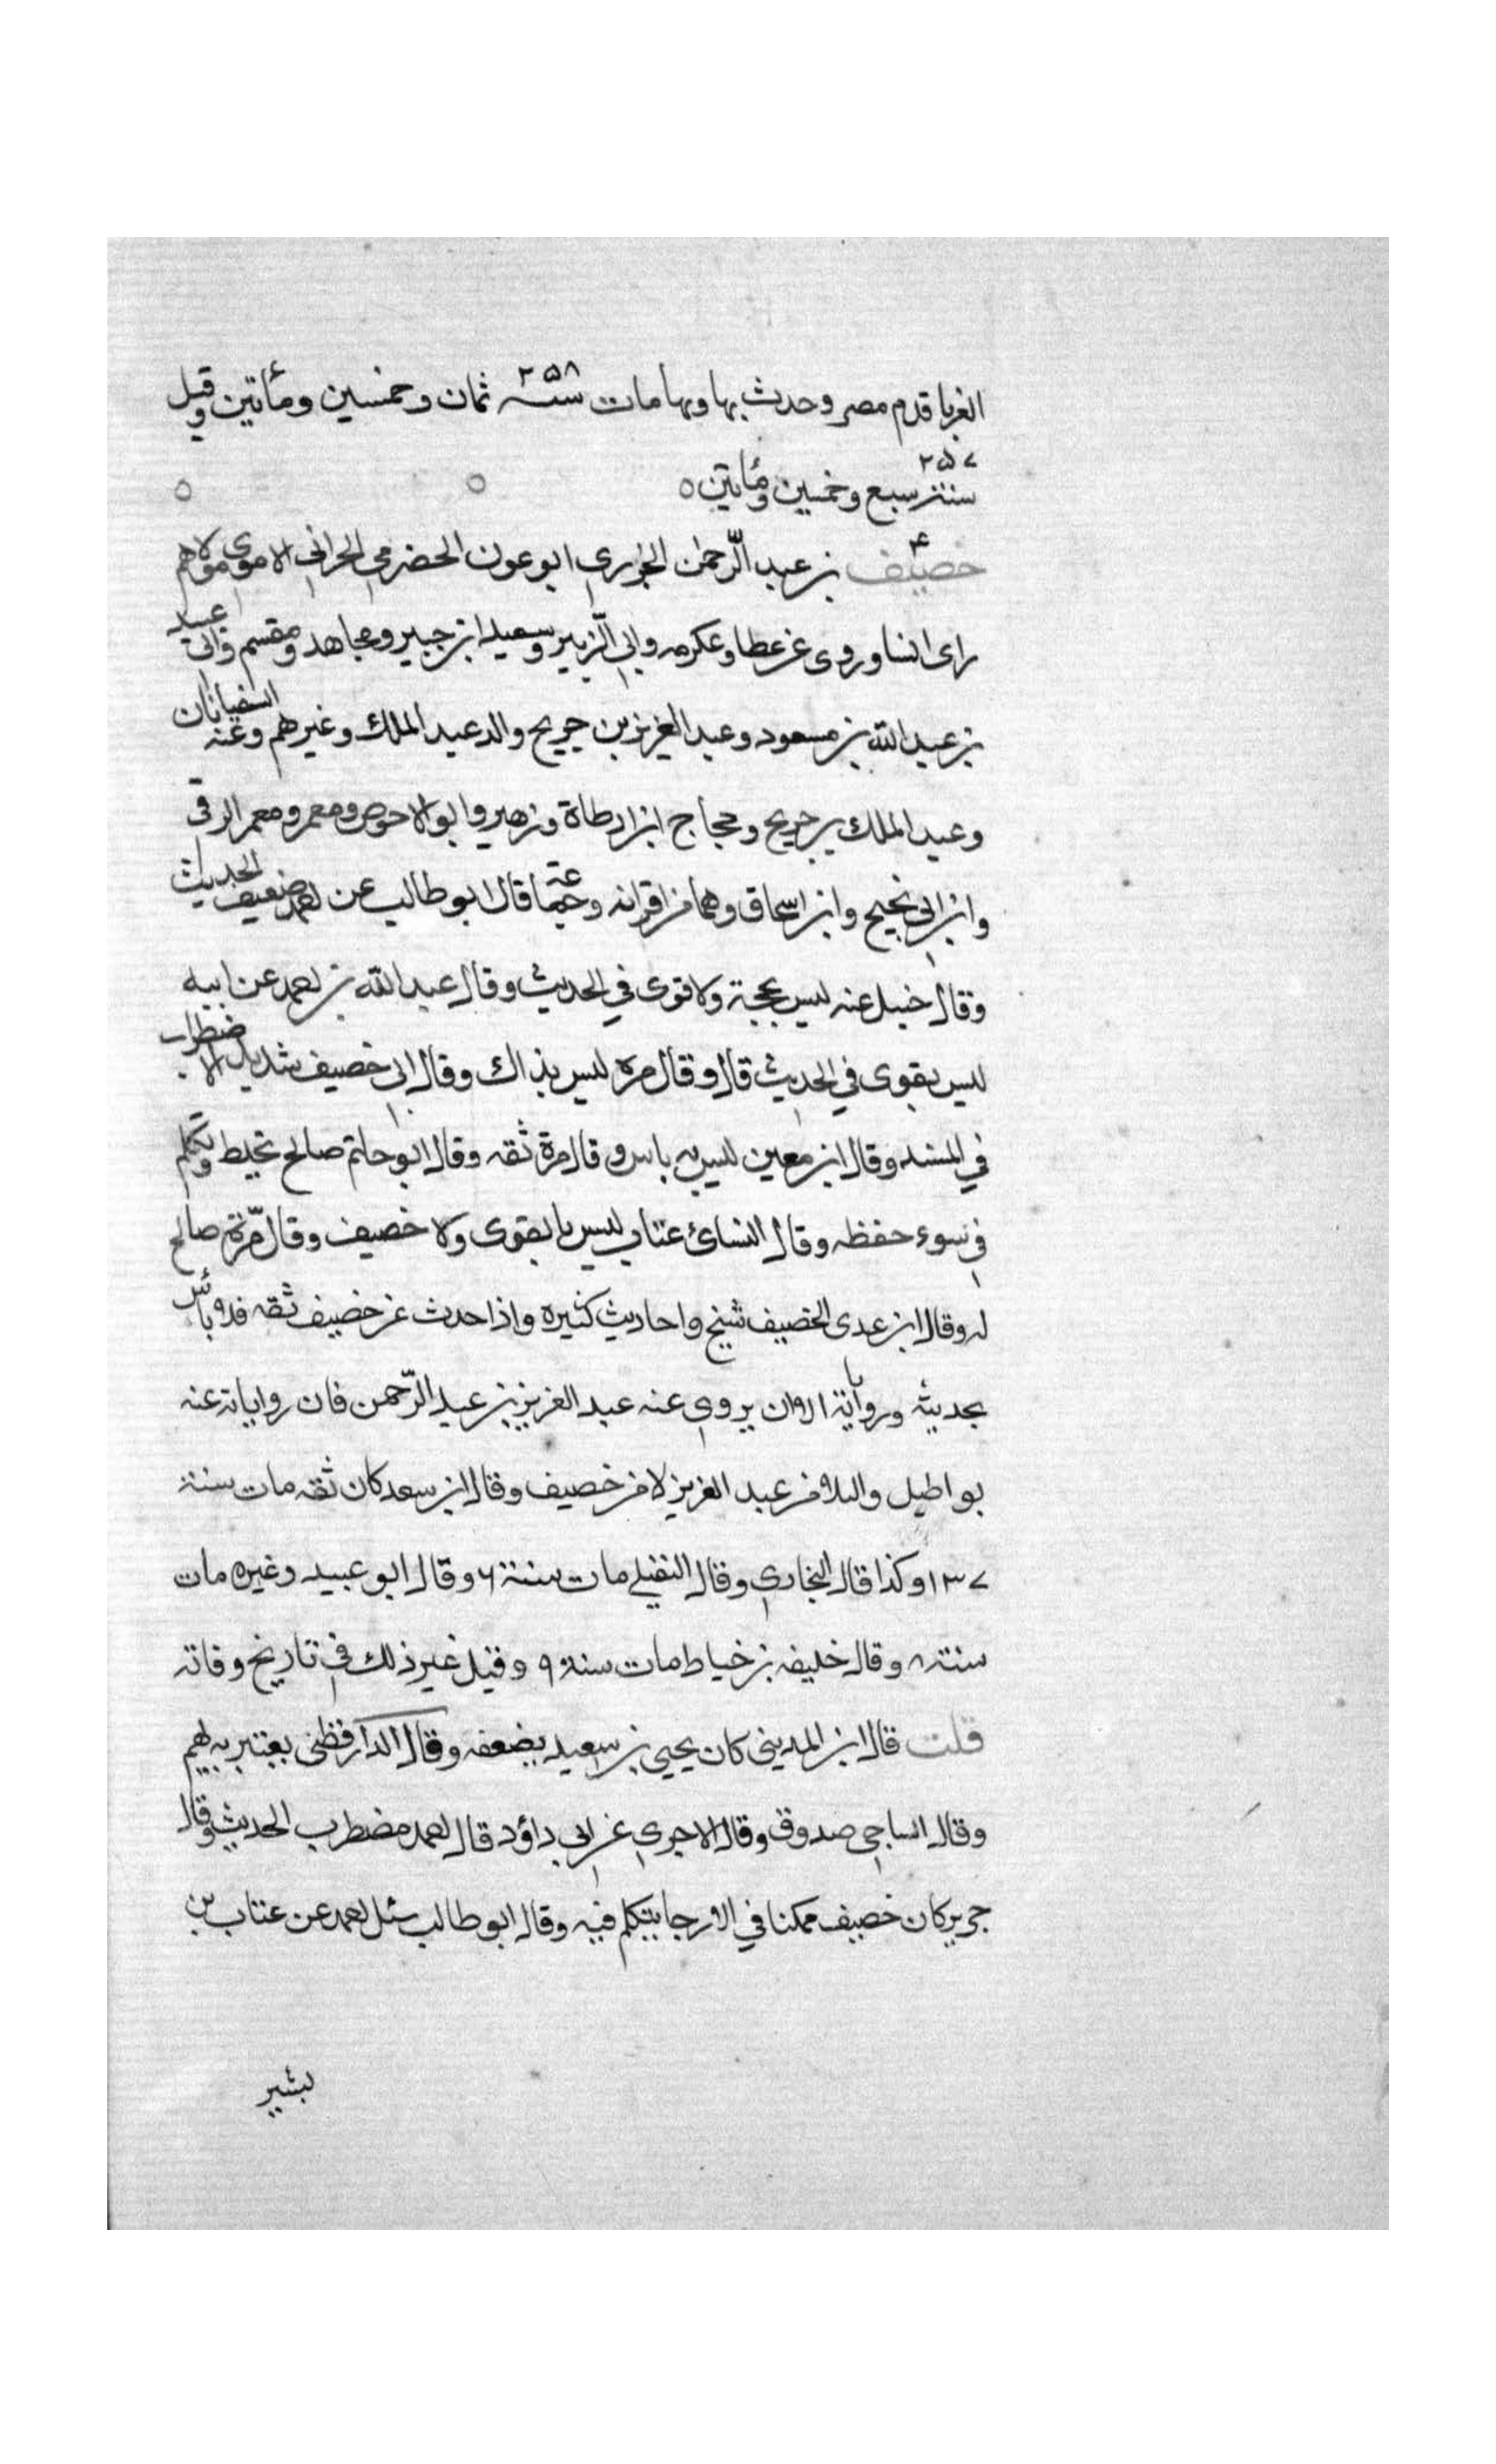 الغربا قدم مصر وحدث بها وبها مات سنة ٢٥٨ ثمان وخمسين ومأتين وقيل
٢٥٧ سنة سبع وخمسين ومأتين ٥ ٥ ٥
خصيف ٤ بن عبد الرّحمٰن الجزري ابو عون الحضرمي الحراني الاموي مولاهم
راى انسا وروى عن عطا وعكرمه وابي الزّبير وسعيد ابن جبير ومجاهد ومقسم وابي عبيد
بن عبد الله بن مسعود وعبد العزيز بن جريج والد عبد الملك وغيرهم وعنه السفيانان
وعبد الملك بن جريج وحجاج ابن ارطاة وزهير وابو الاحوص ومعمر ومعمر الرقى
وابن ابي نجيح وابن اسحاق وهما من اقرانه وجماعة قال ابو طالب عن احمد ضعيف الحديث
وقال حنبل عنه ليس بحجة ولا قوى في الحديث وقال عبد الله بن احمد عن ابيه
ليس بقوى في الحديث قال وقال مره ليس بذاك وقال ابى خصيف شديد الاضطراب
في المسند وقال ابن معين ليس به باس وقال مرة ثقه وقال ابو حاتم صالح يخلط وتكلم
في سوء حفظه وقال النسائ عتاب ليس بالقوى ولا خصيف وقال مّرة صالح
له وقال ابن عدى الخصيف نسخ واحاديث كثيره واذا حدث عن خصيف ثقه فلا بائس
بحديثه ورواياته الا ان يروي عنه عبد العزيز بن عبد الرّحمن فان رواياته عنه
بواطيل والبلاء من عبد العزيز لا من خصيف وقال ابن سعد كان ثقه مات سنة
١٣٧ وكذا قال البخاري وقال النفيلي مات سنة ٦ وقال ابو عبيد وغيره مات
سنة ٨ وقال خليفه بن خياط مات سنة ٩ وقيل غير ذلك في تاريخ وفاته
قلت قال ابن المديني كان يحيى بن سعيد يضعفه وقال الدارقطني يعتبر به يهم
وقال الساجي صدوق وقال الاجري عن ابي داؤد قال احمد مضطرب الحديث وقال
جرير كان خصيف ممكنا في الارجا يتكلم فيه وقال ابو طالب سئل احمد عن عتاب بن
بشير